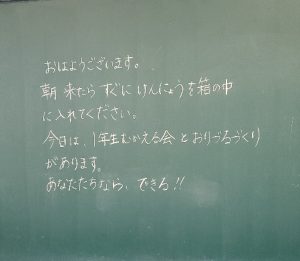 おはようございます。
朝来たらすぐにけんにょうを箱の中
に入れてください。
今日は、1年生むかえる会とおりづるづくり
があります。
あなたたちなら、できる!!